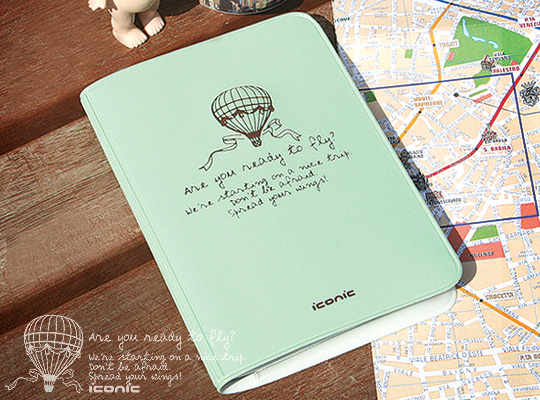 Are you ready to fly?
We're starting on a nice trip.
Don't be afraid.
Spread your wings!
iconic
Are you ready to fly?
We're starting on a nice trip.
Don't be afraid.
Spread your wings!
iconic
PTA
VENEZIA
TURATI
PALESTRO
MONTE-
NAPOLEONE
S. BABILA
CROCETTA
VIALE BEATRICE D'ESTE